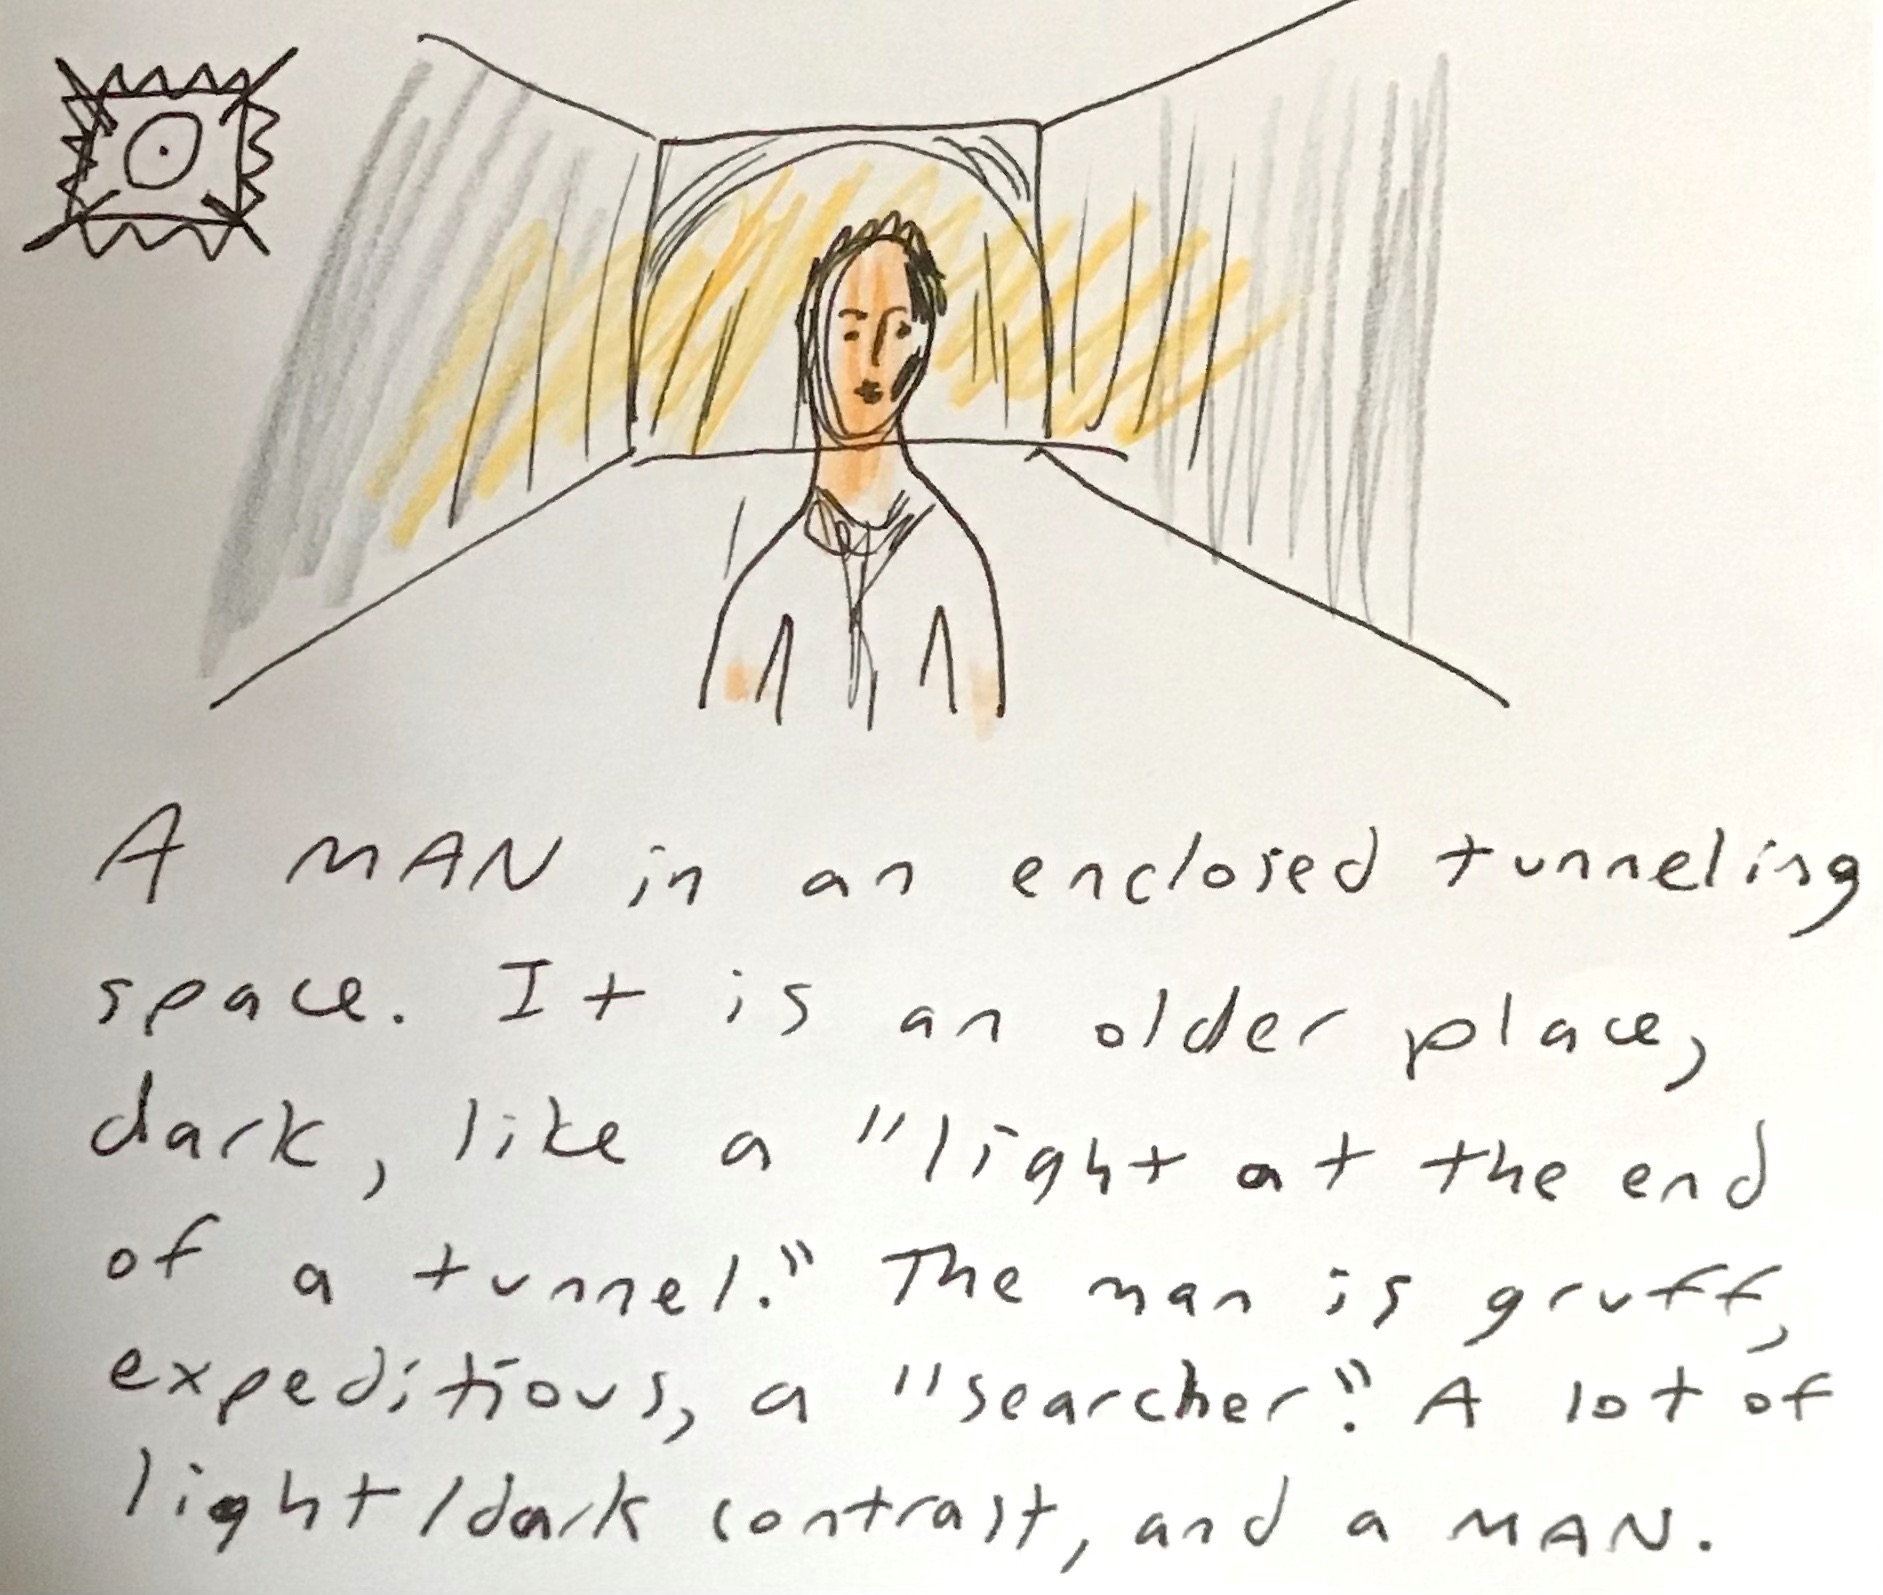 A MAN in an enclosed tunneling
space. It is an older place,
dark, like a "light at the end
of a tunnel." The man is gruff,
expeditious, a "searcher". A lot of
light/dark contrast, and a MAN.